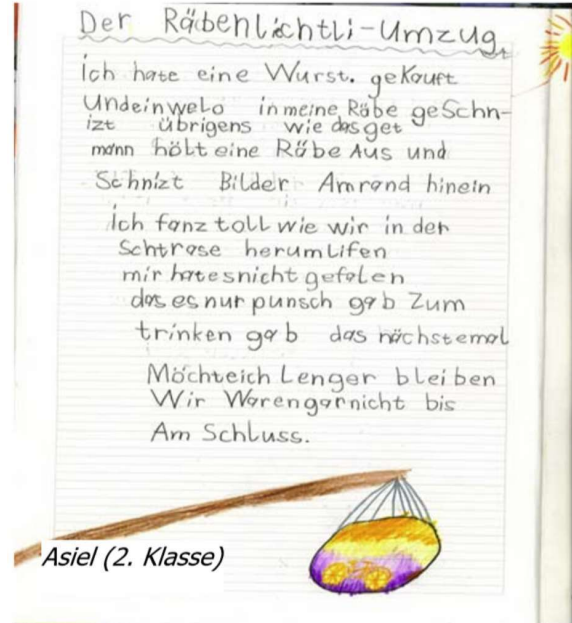 Der Räbenlichtli-Umzug
ich hate eine Wurst. gekauft
Undeinwelo in meine Räbe geSchn-
izt übrigens wie dasget
mann hölt eine Räbe Aus und
Schnizt Bilder Amrand hinein
ich fanz toll wie wir in der
Schtrase herumlifen
mir hatesnicht gefalen
das es nur punsch gab Zum
trinken gab das nächstemal
Möchteich Lenger bleiben
Wir Warengarnicht bis
Am Schluss.
Asiel (2. Klasse)